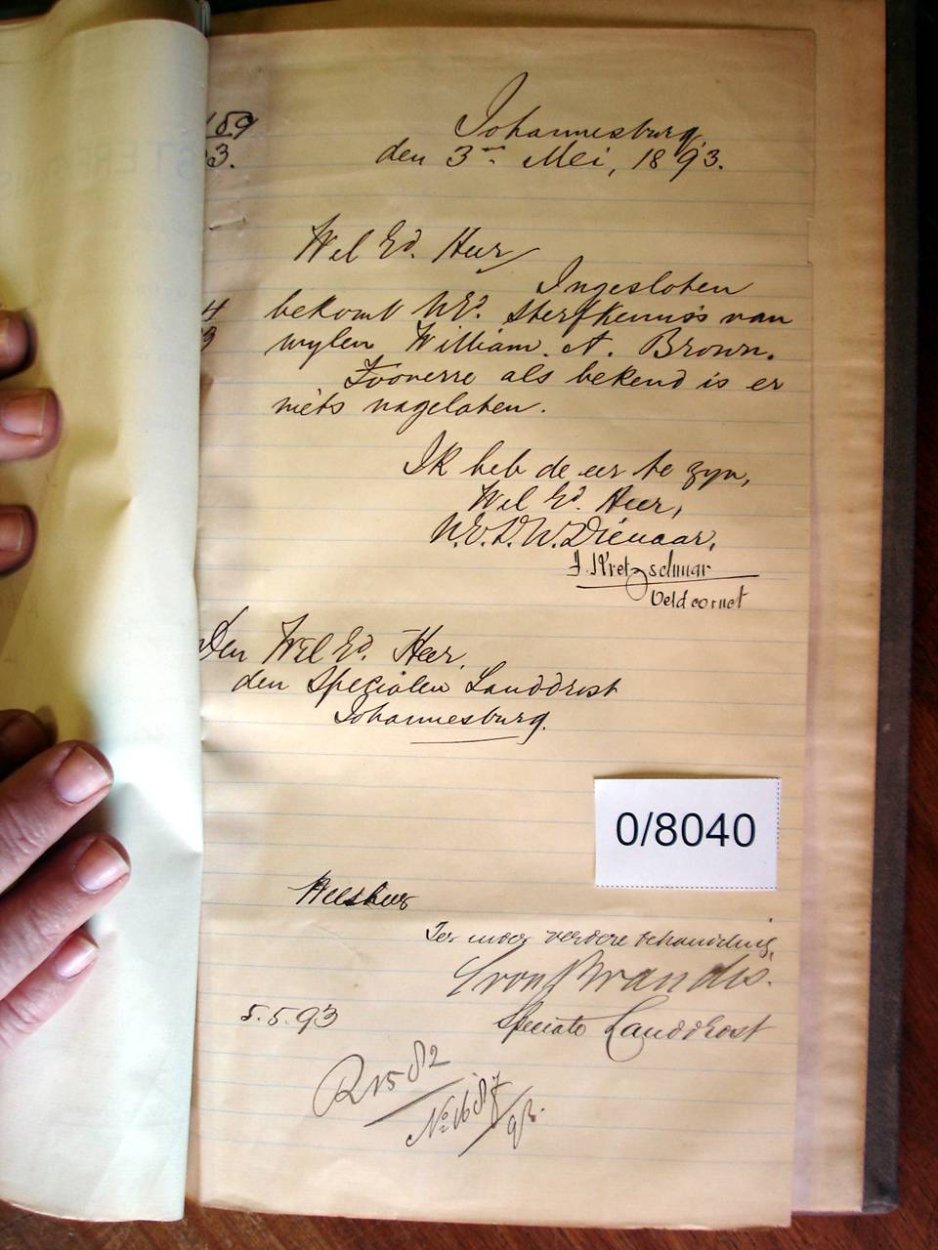 189
3.
Johannesburg,
den 3en Mei, 1893.
Wel Ed. Heer
Ingesloten
bekomt UEd. Sterfkennis van
wylen William. A. Brown.
Zooverre als bekend is er
niets nagelaten.
Ik heb de eer te zyn,
Wel Ed. Heer,
U.E.D.W. Dienaar,
J. Kretzschmar
Veldcornet
Den Wel Ed. Heer,
den Specialen Landdrost
Johannesburg.
0/8040
Weesheer
verdere behandeling,
Von Brandis.
5.5.93 Speciale Landdrost
R1582
No 1687/93.